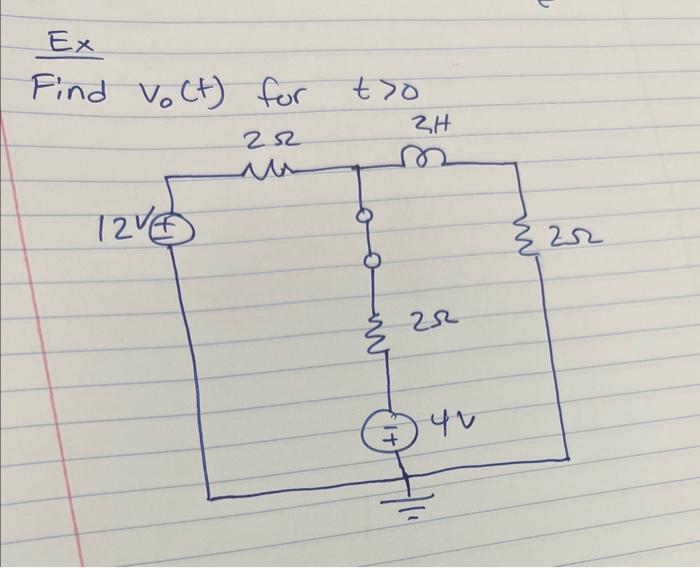 Ex
Find Vo(t) for t>0
2Ω
2H
12V
+
2Ω
2Ω
-
+
4V